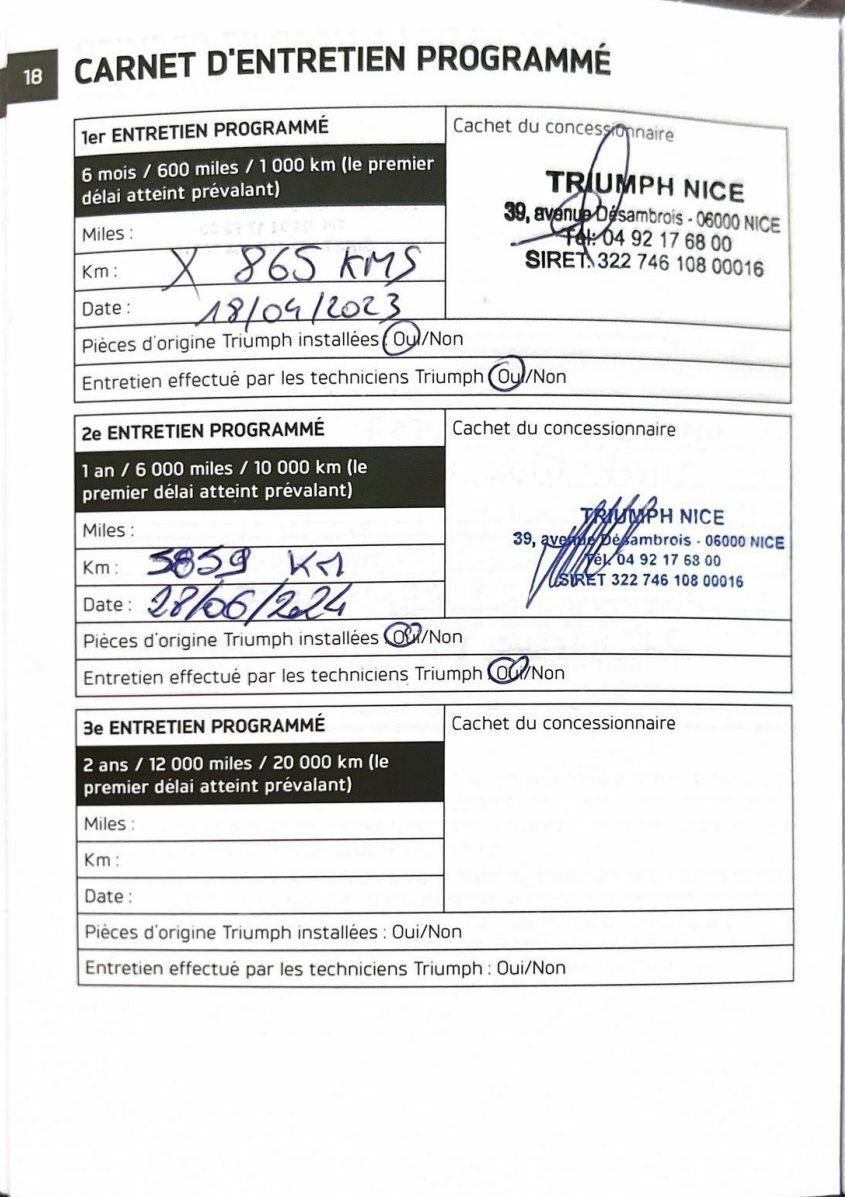 18
CARNET D'ENTRETIEN PROGRAMMÉ
1er ENTRETIEN PROGRAMMÉ
6 mois / 600 miles / 1 000 km (le premier
délai atteint prévalant)
Miles :
Km : X 865 KMS
Date : 18/04/2023
Cachet du concessionnaire
TRIUMPH NICE
39, avenue Désambrois - 06000 NICE
Tél: 04 92 17 68 00
SIRET: 322 746 108 00016
Pièces d'origine Triumph installées : Oui/Non
Entretien effectué par les techniciens Triumph : Oui/Non
2e ENTRETIEN PROGRAMMÉ
1 an / 6 000 miles / 10 000 km (le
premier délai atteint prévalant)
Miles :
Km : 5859 KM
Date : 28/06/2024
Cachet du concessionnaire
TRIUMPH NICE
39, avenue Désambrois - 06000 NICE
Tél. 04 92 17 68 00
SIRET 322 746 108 00016
Pièces d'origine Triumph installées : Oui/Non
Entretien effectué par les techniciens Triumph : Oui/Non
3e ENTRETIEN PROGRAMMÉ
2 ans / 12 000 miles / 20 000 km (le
premier délai atteint prévalant)
Miles :
Km :
Date :
Cachet du concessionnaire
Pièces d'origine Triumph installées : Oui/Non
Entretien effectué par les techniciens Triumph : Oui/Non